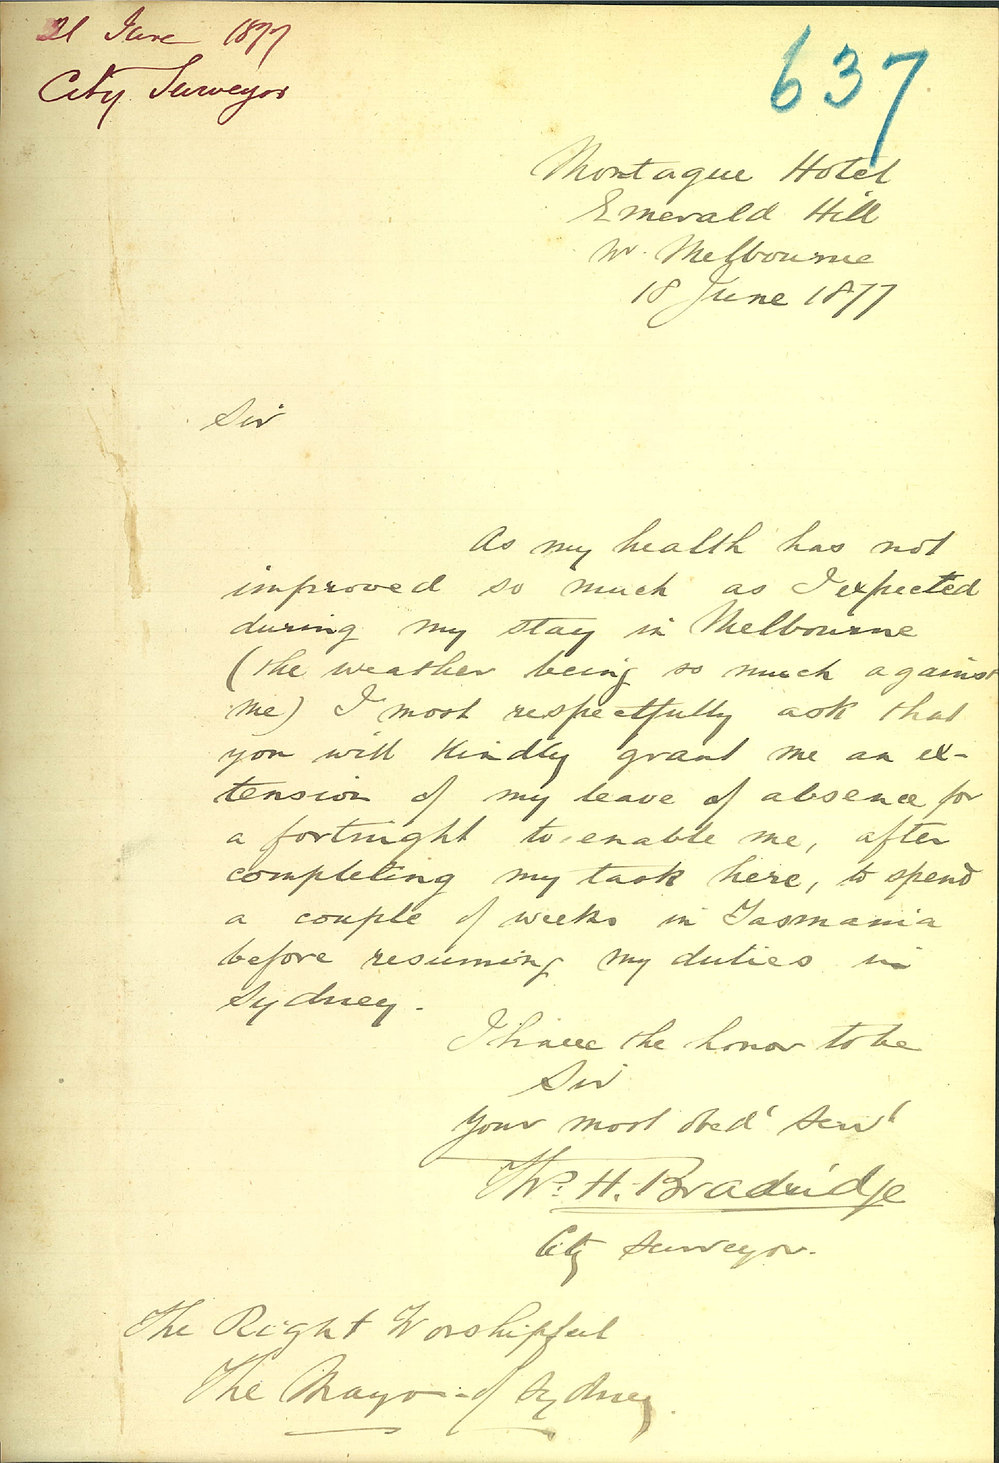 21 June 1877
City Surveyor
637
Montague Hotel
Emerald Hill
Nr. Melbourne
18 June 1877
Sir
As my health has not
improved so much as I expected
during my stay in Melbourne
(the weather being so much against
me) I most respectfully ask that
you will kindly grant me an ex-
tension of my leave of absence for
a fortnight to enable me, after
completing my task here, to spend
a couple of weeks in Tasmania
before resuming my duties in
Sydney.
I have the honor to be
Sir
Your most obedt servt
Thos. H. Bradridge
City Surveyor.
The Right Worshipful
The Mayor of Sydney.